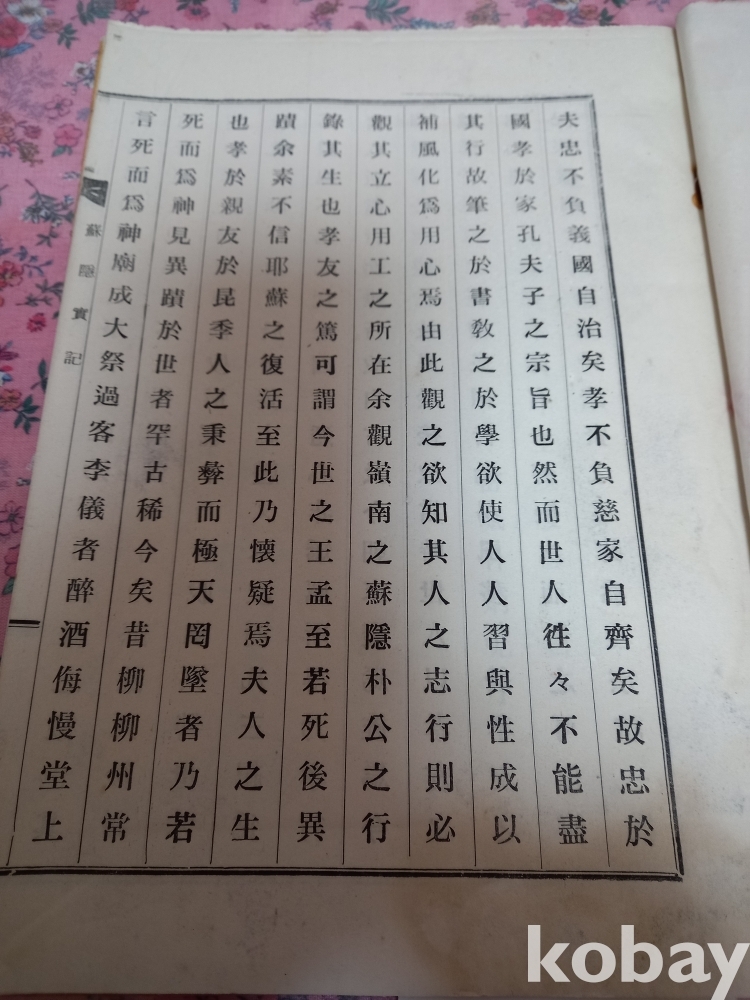 夫忠不負義國自治矣孝不負慈家自齊矣故忠於
國孝於家孔夫子之宗旨也然而世人徃々不能盡
其行故筆之於書敎之於學欲使人人習與性成以
補風化爲用心焉由此觀之欲知其人之志行則必
觀其立心用工之所在余觀嶺南之蘇隱朴公之行
錄其生也孝友之篤可謂今世之王孟至若死後異
蹟余素不信耶蘇之復活至此乃懷疑焉夫人之生
也孝於親友於昆季人之秉彜而極天罔墜者乃若
死而爲神見異蹟於世者罕古稀今矣昔柳柳州常
言死而爲神廟成大祭過客李儀者醉酒侮慢堂上
蘇隱實記
kobay